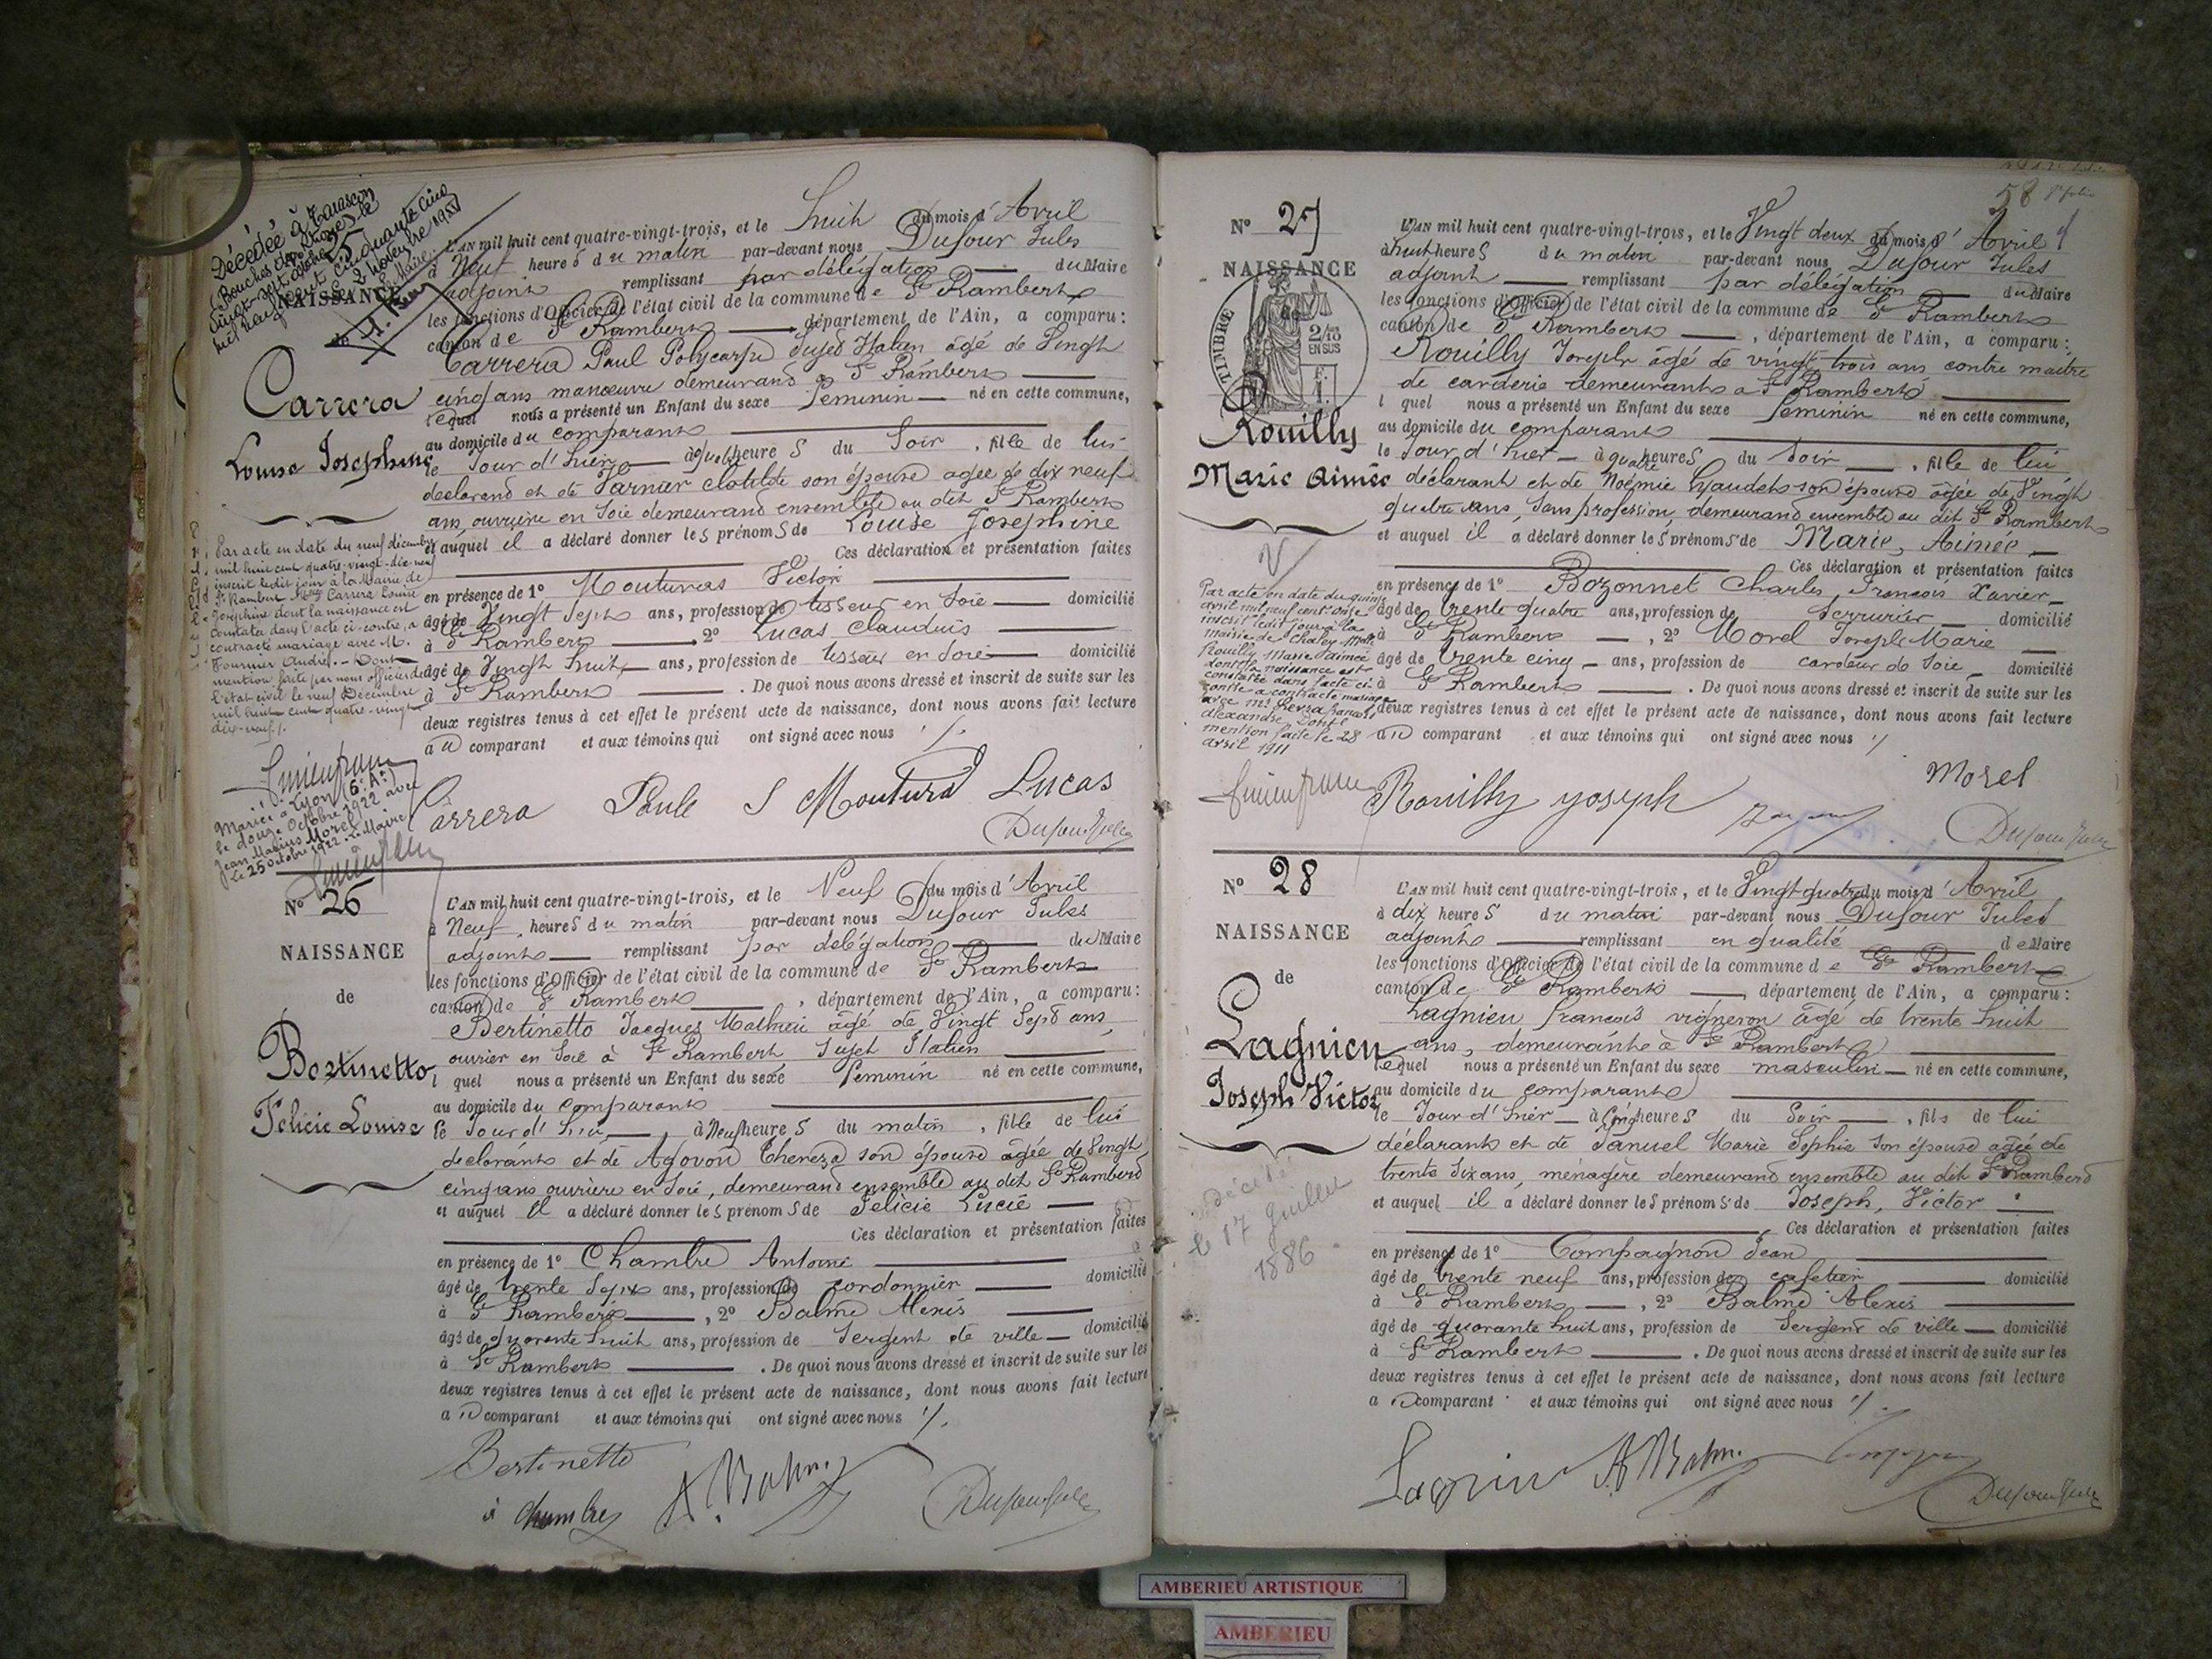 Décédée à Tarascon
(Bouches du Rhône) le
vingt-sept octobre
mil neuf cent cinquante cinq
2 Novembre 1955
Le Maire
25
NAISSANCE
de
Carrera
Louise Josephine
L'AN mil huit cent quatre-vingt-trois, et le huit du mois d'Avril
à Neuf heures du matin par-devant nous Dufour Jules
adjoint remplissant par délégation du Maire
les fonctions d'Officier de l'état civil de la commune de St Rambert
canton de St Rambert département de l'Ain, a comparu:
Carrera Paul Polycarpe Sujet Italien âgé de Vingt
cinq ans manœuvre demeurant à St Rambert
lequel nous a présenté un Enfant du sexe feminin né en cette commune,
au domicile du comparant
le Jour d'hier à heures du Soir, fille de lui
déclarant et de Varnier Clotilde son épouse agée de dix neuf
ans, ouvrière en Soie demeurant ensemble au dit St Rambert
et auquel il a déclaré donner les prénoms de Louise Josephine
Ces déclaration et présentation faites
en présence de 1° Mouturas Victor
âgé de Vingt Sept ans, profession de tisseur en Soie domicilié
à St Rambert 2° Lucas Claudius
âgé de Vingt huit ans, profession de tisseur en Soie domicilié
à St Rambert. De quoi nous avons dressé et inscrit de suite sur les
deux registres tenus à cet effet le présent acte de naissance, dont nous avons fait lecture
au comparant et aux témoins qui ont signé avec nous ./.
Par acte en date du neuf décembre
mil huit cent quatre-vingt-dix-neuf
inscrit ledit jour à la Mairie de
St Rambert Carrera Louise
Josephine dont la naissance est
constatée dans l'acte ci-contre, a
contracté mariage avec M.
Fournier André. - Dont
mention faite par nous officier de
l'état civil le neuf Décembre
mil huit cent quatre-vingt
dix-neuf./.
Mariée à Lyon (6e Ar)
le douze Octobre 1922 avec
Jean Marius Morel
Le 25 octobre 1922. Le Maire
Carrera Paule S Mouturа Lucas
Dufour Jules
N° 26
NAISSANCE
de
Bertinetto
Félicie Louise
L'AN mil huit cent quatre-vingt-trois, et le Neuf du mois d'Avril
à Neuf heures du matin par-devant nous Dufour Jules
adjoint remplissant par délégation du Maire
les fonctions d'Officier de l'état civil de la commune de St Rambert
canton de St Rambert, département de l'Ain, a comparu:
Bertinetto Jacques Mathieu âgé de Vingt Sept ans
ouvrier en Soie à St Rambert Sujet Italien
lequel nous a présenté un Enfant du sexe feminin né en cette commune,
au domicile du comparant
le Jour d'hier, à Neuf heures du matin, fille de lui
declarant et de Agovon Thereza son épouse âgée de Vingt
cinq ans ouvrière en Soie, demeurant ensemble au dit St Rambert
et auquel il a déclaré donner les prénoms de Félicie Lucie
Ces déclaration et présentation faites
en présence de 1° Chambre Antoine
âgé de trente Sept ans, profession de cordonnier domicilié
à St Rambert, 2° Balme Alexis
âgé de quarante huit ans, profession de Sergent de ville domicilié
à St Rambert. De quoi nous avons dressé et inscrit de suite sur les
deux registres tenus à cet effet le présent acte de naissance, dont nous avons fait lecture
au comparant et aux témoins qui ont signé avec nous ./.
Bertinetto
à Chambre A. Balme Dufour Jules
58
N° 27
NAISSANCE
de
TIMBRE
2/10
EN SUS
F.
1.
Rouilly
Marie Aimée
L'AN mil huit cent quatre-vingt-trois, et le Vingt deux du mois d'Avril
à huit heures du matin par-devant nous Dufour Jules
adjoint remplissant par délégation du Maire
les fonctions d'Officier de l'état civil de la commune de St Rambert
canton de St Rambert, département de l'Ain, a comparu:
Rouilly Joseph âgé de vingt trois ans contre maitre
de carderie demeurant à St Rambert
lequel nous a présenté un Enfant du sexe feminin né en cette commune,
au domicile du comparant
le Jour d'hier à quatre heures du Soir, fille de lui
déclarant et de Noémie son épouse âgée de Vingt
quatre ans, Sans profession, demeurant ensemble au dit St Rambert
et auquel il a déclaré donner les prénoms de Marie, Aimée
Ces déclaration et présentation faites
en présence de 1° Bozonnet Charles, François Xavier
âgé de trente quatre ans, profession de Serrurier domicilié
à St Rambert, 2° Morel Joseph Marie
âgé de trente cinq ans, profession de cardeur de Soie domicilié
à St Rambert. De quoi nous avons dressé et inscrit de suite sur les
deux registres tenus à cet effet le présent acte de naissance, dont nous avons fait lecture
au comparant et aux témoins qui ont signé avec nous ./
Par acte en date du quinze
avril mil neuf cent onze
inscrit ledit jour à la
mairie de Chaley Melle
Rouilly Marie Aimée
dont la naissance est
constatée dans l'acte ci-
contre a contracté mariage
avec Mr François
Alexandre, Dont
mention faite le 28
avril 1911
Rouilly Joseph
Morel
Dufour Jules
N° 28
NAISSANCE
de
Lagnieu
Joseph Victor
L'AN mil huit cent quatre-vingt-trois, et le Vingt quatre du mois d'Avril
à dix heures du matin par-devant nous Dufour Jules
adjoint remplissant en qualité de Maire
les fonctions d'Officier de l'état civil de la commune de St Rambert
canton de St Rambert, département de l'Ain, a comparu:
Lagnieu François vigneron âgé de trente huit
ans, demeurant à St Rambert
lequel nous a présenté un Enfant du sexe masculin né en cette commune,
au domicile du comparant
le Jour d'hier à Cinq heures du Soir, fils de lui
déclarant et de Marie Sophie son épouse agée de
trente Six ans, ménagère demeurant ensemble au dit St Rambert
et auquel il a déclaré donner les prénoms de Joseph, Victor
Ces déclaration et présentation faites
en présence de 1° Compagnon Jean
âgé de trente neuf ans, profession de cafetier domicilié
à St Rambert, 2° Balme Alexis
âgé de quarante huit ans, profession de Sergent de ville domicilié
à St Rambert. De quoi nous avons dressé et inscrit de suite sur les
deux registres tenus à cet effet le présent acte de naissance, dont nous avons fait lecture
au comparant et aux témoins qui ont signé avec nous ./.
décédé
le 17 Juillet
1886
Lagnieu A Balme Compagnon
Dufour Jules
AMBERIEU ARTISTIQUE
AMBERIEU